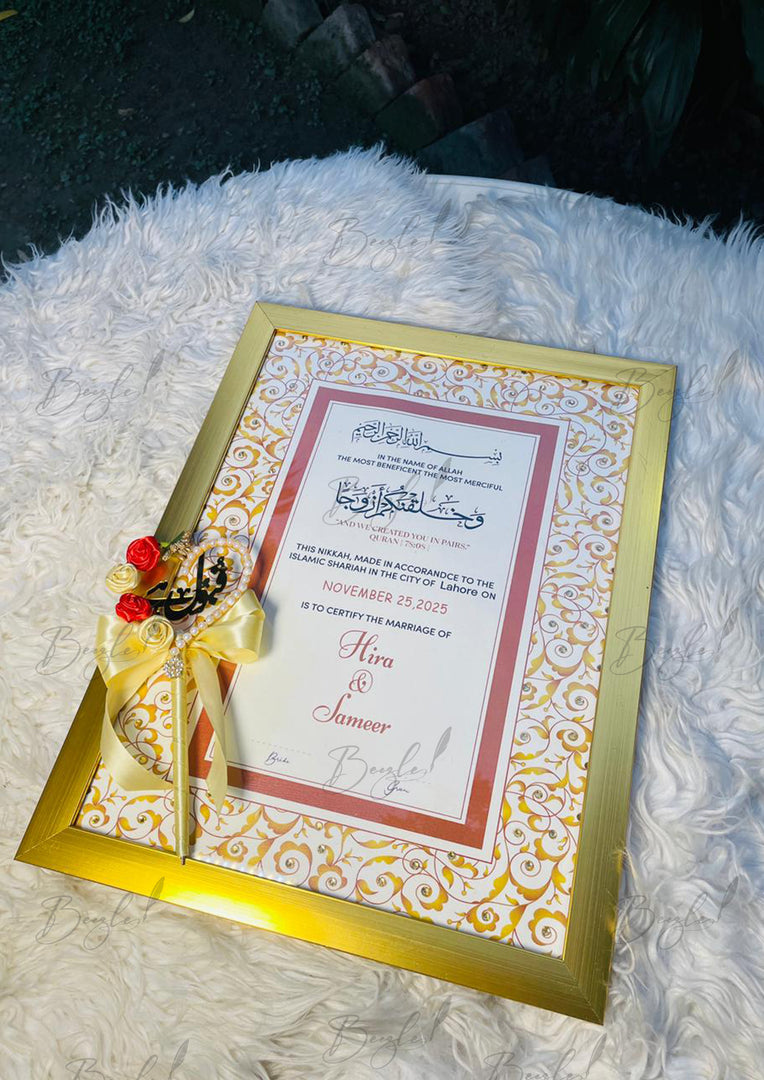 بسم الله الرحمن الرحيم
IN THE NAME OF ALLAH
THE MOST BENEFICENT THE MOST MERCIFUL
وخلقنكم أزوجا
"AND WE CREATED YOU IN PAIRS,"
QURAN | 78:08 |
THIS NIKKAH, MADE IN ACCORANDCE TO THE
ISLAMIC SHARIAH IN THE CITY OF Lahore ON
NOVEMBER 25,2025
IS TO CERTIFY THE MARRIAGE OF
Hira
&
Sameer
Bride
قبول ہے
Beezle